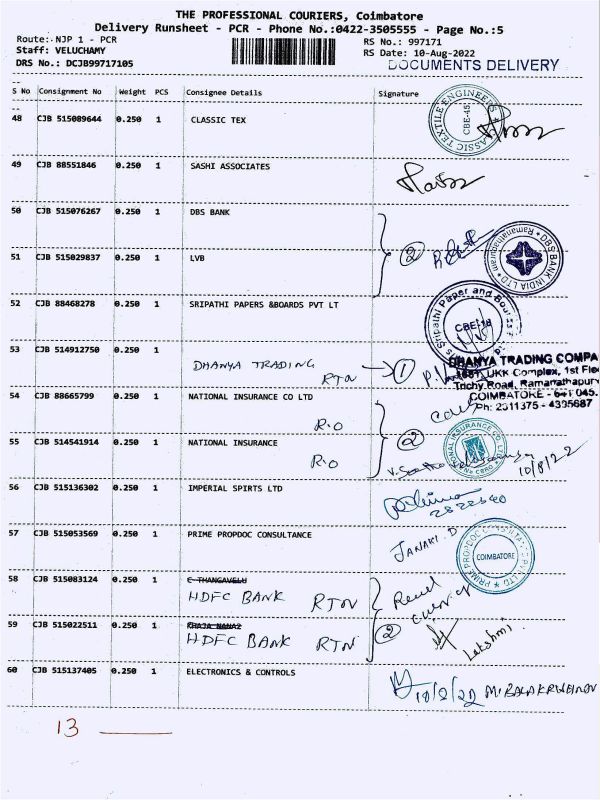 THE PROFESSIONAL COURIERS, Coimbatore
Delivery Runsheet - PCR - Phone No.:0422-3505555 - Page No.:5
Route: NJP 1 - PCR
RS No.: 997171
Staff: VELUCHAMY
RS Date: 10-Aug-2022
DRS No.: DCJB99717105
DOCUMENTS DELIVERY
S No Consignment No Weight PCS Consignee Details Signature
48 CJB 515089644 0.250 1 CLASSIC TEX
CLASSIC TEXTILE ENGINEERS CBE-45
49 CJB 88551846 0.250 1 SASHI ASSOCIATES
50 CJB 515076267 0.250 1 DBS BANK
2
DBS BANK INDIA LTD Ramanathapuram
51 CJB 515029837 0.250 1 LVB
52 CJB 88468278 0.250 1 SRIPATHI PAPERS &BOARDS PVT LT
Sripathi Paper and Boards CBE-18
53 CJB 514912750 0.250 1
DHANYA TRADING
RTN
1
DHANYA TRADING COMPA
UKK Complex, 1st Floo
Trichy Road, Ramanathapur
COIMBATORE - 641 045.
Ph: 2311375 - 4395687
54 CJB 88665799 0.250 1 NATIONAL INSURANCE CO LTD
R.O
2
NATIONAL INSURANCE CO. LTD
55 CJB 514541914 0.250 1 NATIONAL INSURANCE
R.O
10/8/22
56 CJB 515136302 0.250 1 IMPERIAL SPIRTS LTD
57 CJB 515053569 0.250 1 PRIME PROPDOC CONSULTANCE
JANAKI. D
PRIME PROPDOC CONSULTANCE PVT LTD COIMBATORE
58 CJB 515083124 0.250 1 C THANGAVELU
HDFC BANK RTN
59 CJB 515022511 0.250 1 KHAJA NANA2
HDFC BANK RTN
2
Lakshmi
60 CJB 515137405 0.250 1 ELECTRONICS & CONTROLS
M. BALAKRISHNAN
13